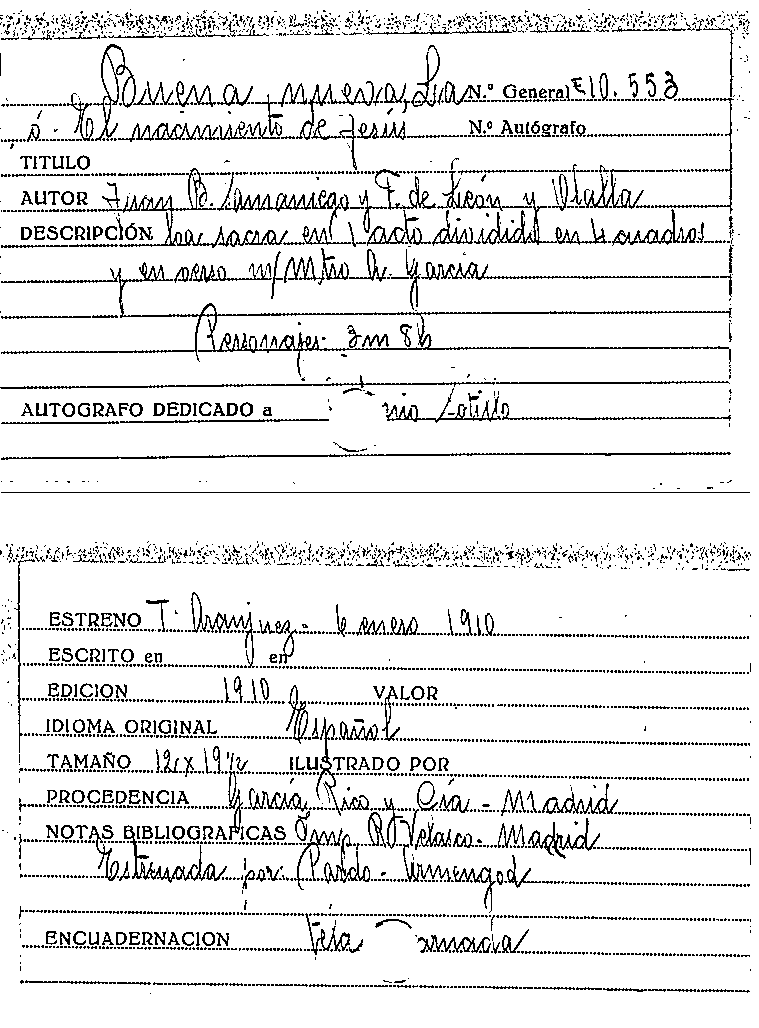 Buena nueva, La N.º General E10.553
ó- El nacimiento de Jesús N.º Autógrafo
TITULO
AUTOR Juan B. Samaniego y F. de León y Olalla
DESCRIPCIÓN loa sacra en 1 acto dividido en 4 cuadros
y en verso m/ Mtro A. García
Personajes- 3m 8h
AUTOGRAFO DEDICADO a nio Cotillo
ESTRENO T. Aranjuez- 6 enero 1910
ESCRITO en en
EDICION 1910 VALOR
IDIOMA ORIGINAL Español
TAMAÑO 12 x 19½ ILUSTRADO POR
PROCEDENCIA García Rico y Cía - Madrid
NOTAS BIBLIOGRAFICAS Imp. R. Velasco- Madrid
Estrenada por: Pardo - Armengod
ENCUADERNACION Tela